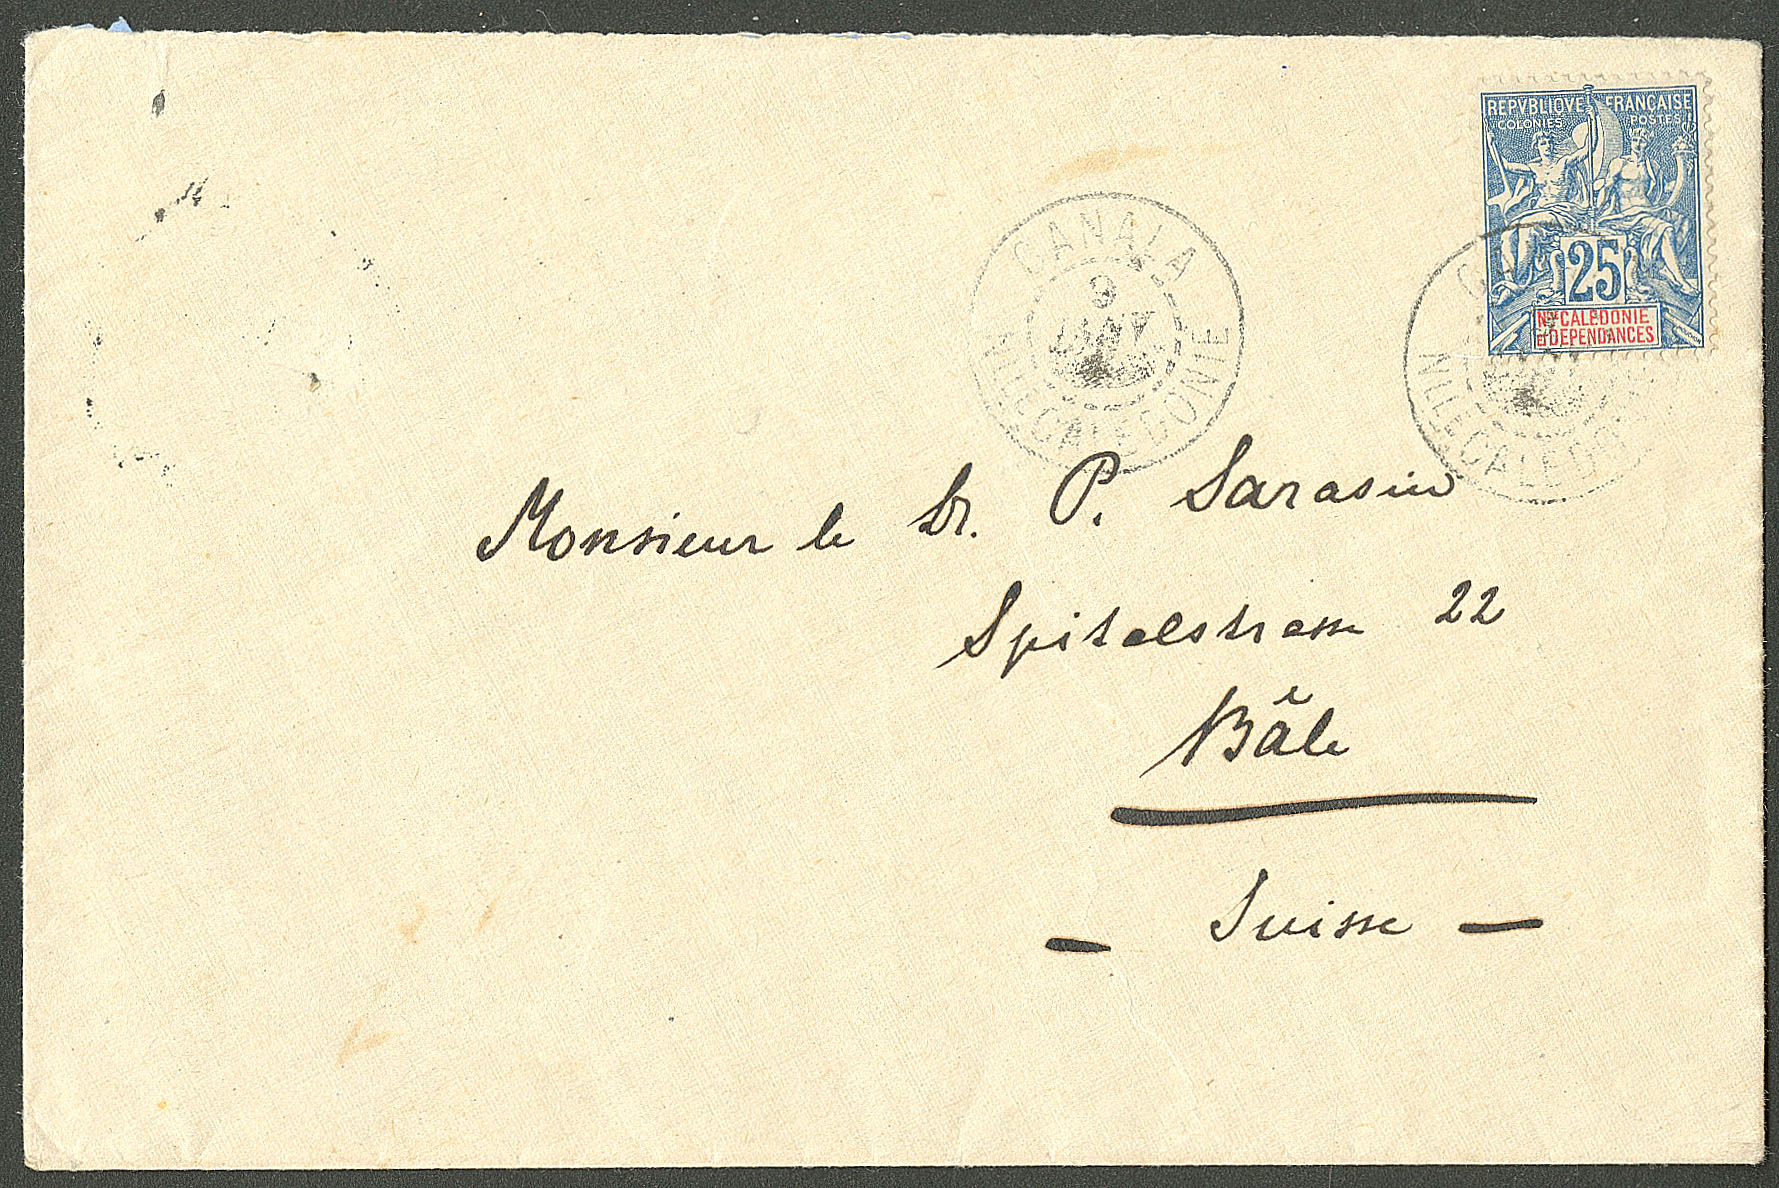 REPVBLIQVE FRANÇAISE
COLONIES POSTES
25
Nlle CALEDONIE
ET DEPENDANCES
CANALA
JANV
Nlle CALEDONIE
Nlle CALEDO
Monsieur le Dr. P. Sarasin
Spitalstrasse 22
Bâle
Suisse